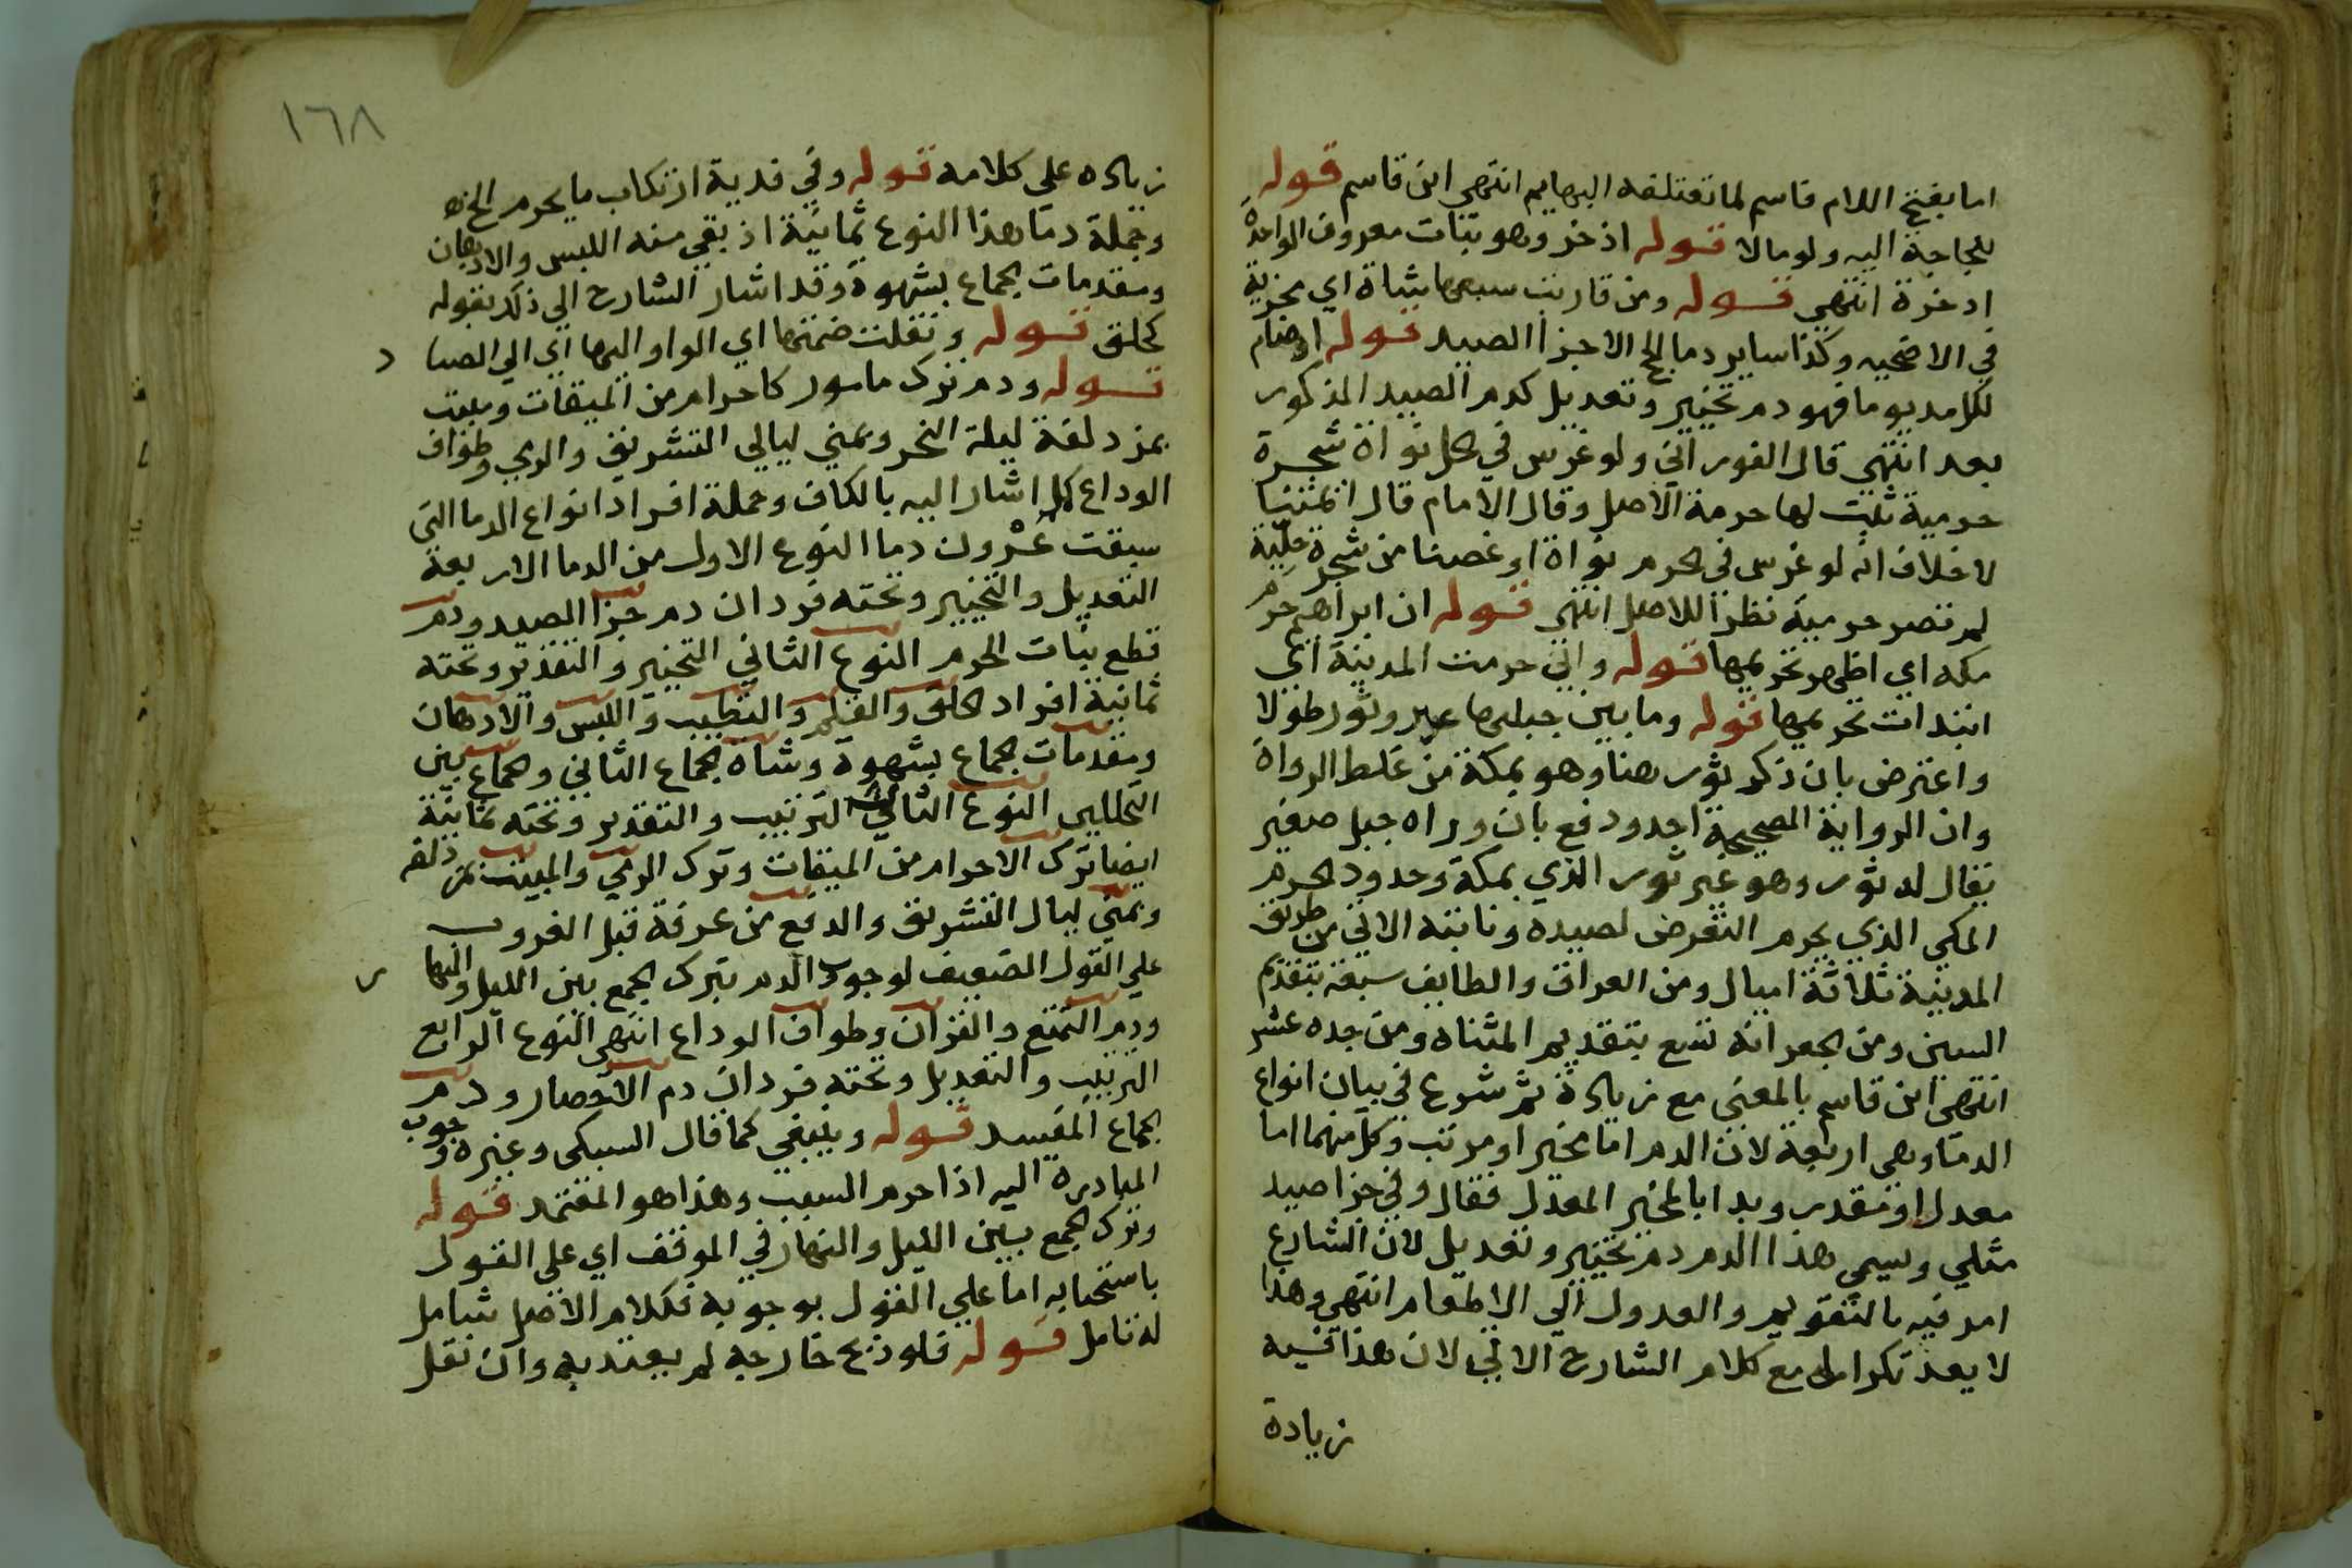 اما بفتح اللام فاسم لما تعتلفه البهايم انتهى ابن قاسم قوله
للحاجة اليه ولو مالا قوله اذخر وهو نبات معروف الواحدة
اذخرة انتهى قوله ومن قاربت سبعها بشاة اي مجزية
في الاضحيه وكذا ساير دما الحج الا جزا الصيد قوله او صام
لكل مد يوما فهو دم تخيير وتعديل كدم الصيد المذكور
بعد انتهى قال الفوراني ولو غرس في الحل نواة شجرة
حرمية ثبت لها حرمة الاصل وقال الامام قال ائمتنا
لا خلاف انه لو غرس في الحرم نواة او غصنا من شجرة حلية
لم تصر حرمية نظرا للاصل انتهى قوله ان ابراهيم حرم
مكه اي اظهر تحريمها قوله واني حرمت المدينة اي
ابتدات تحريمها قوله وما بين جبليها عير وثور طولا
واعترض بان ذكر ثور هنا وهو بمكة من غلط الرواة
وان الرواية الصحيحة احد ودفع بان وراه جبل صغير
يقال له ثور وهو غير ثور الذي بمكة وحدود الحرم
المكي الذي يحرم التعرض لصيده ونابته الاتي من طريق
المدينة ثلاثة اميال ومن العراق والطايف سبعة بتقديم
السين ومن الجعرانة تسع بتقديم المثناه ومن جده عشر
انتهى ابن قاسم بالمعنى مع زيادة ثم شرع في بيان انواع
الدما وهي اربعة لان الدم اما مخير او مرتب وكل منهما اما
معدل او مقدر وبدا بالمخير المعدل فقال وفي جزا صيد
مثلي ويسمى هذا الدم دم تخيير وتعديل لان الشارع
امر فيه بالتقويم والعدول الى الاطعام انتهى وهذا
لا يعد تكرارا مع كلام الشارح الاتي لان هذا فيه
زيادة
١٦٨
زياده على كلامه قوله وفي فدية ارتكاب ما يحرم الخ
وجملة دما هذا النوع ثمانية اذ بقي منه اللبس والادهان
ومقدمات الجماع بشهوة وقد اشار الشارح الى ذلك بقوله
كحلق قوله ونقلت ضمتها اي الواو اليها اي الى الصاد
قوله ودم ترك مامور كاحرام من الميقات ومبيت
بمزدلفة ليلة النحر وبمنى ليالي التشريق والرمي وطواف
الوداع كل اشار اليه بالكاف وجملة افراد انواع الدما التي
سبقت عشرون دما النوع الاول من الدما الاربعة
التعديل والتخيير وتحته فردان دم جزا الصيد ودم
قطع نبات الحرم النوع الثاني التخيير والتقدير وتحته
ثمانية افراد الحلق والقلم والتطيب واللبس والادهان
ومقدمات الجماع بشهوة وشاة الجماع الثاني والجماع بين
التحللين النوع الثالث الترتيب والتقدير وتحته ثمانية
ايضا ترك الاحرام من الميقات وترك الرمي والمبيت بمزدلفه
وبمنى ليال التشريق والدفع من عرفة قبل الغروب
على القول الضعيف لوجوب الدم بترك الجمع بين الليل والنهار
ودم التمتع والقران وطواف الوداع انتهى النوع الرابع
الترتيب والتعديل وتحته فردان دم الاحصار ودم
الجماع المفسد قوله وينبغي كما قال السبكى وغيره وجوب
المبادرة اليه اذا حرم السبب وهذا هو المعتمد قوله
وترك الجمع بين الليل والنهار في الموقف اي على القول
باستحبابه اما على القول بوجوبه فكلام الاصل شامل
له تامل قوله فلو ذبح خارجه لم يعتد به وان نقل